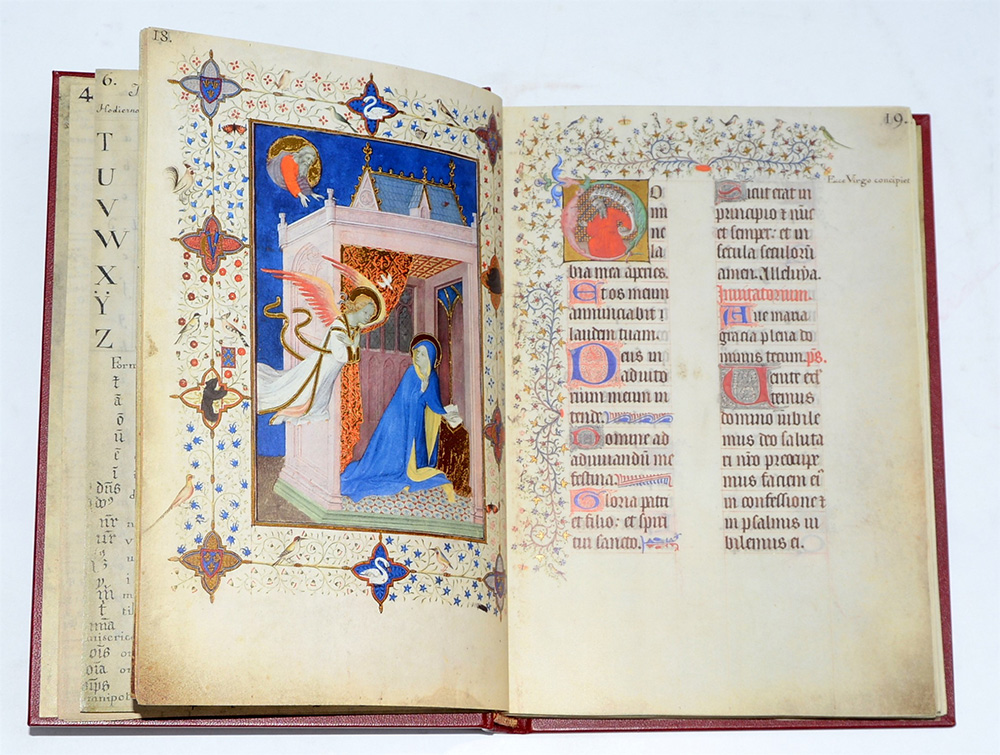 4
6.
Hodierno
T
U
V
W
X
Ÿ
Z
Form
18.
19.
Ecce Virgo concipiet
O
mi
ne
la
bia mea apries.
Et os meum
annunciabit
laudem tuam.
Deus in
adiuto
rium meum in
tende.
Domine ad
adiuuandū me
festina.
Gloria patri
et filio: et spiri
tui sancto.
Sicut erat in
principio et nūc
et semper: et in
secula seculorū
amen. Alleluya.
Inuitatorium.
Aue maria
gracia plena do
minus tecum. ps.
Uenite ex
temus
domino iubile
mus deo saluta
ri nr̄o preocupe
mus faciem ei
in confessione et
in psalmis iu
bilemus ei.